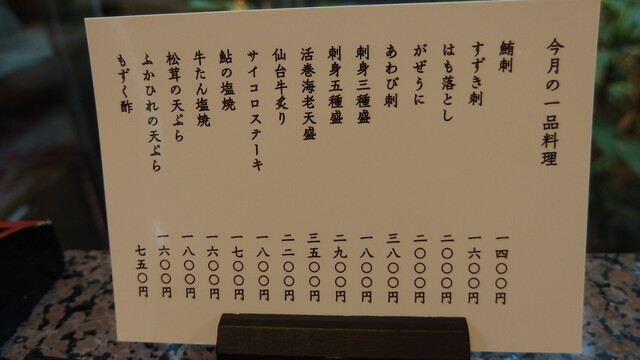 今月の一品料理
鮪刺 一四〇〇円
すずき刺 一六〇〇円
はも落とし 二〇〇〇円
がぜうに 二〇〇〇円
あわび刺 三八〇〇円
刺身三種盛 一八〇〇円
刺身五種盛 二九〇〇円
活巻海老天盛 三五〇〇円
仙台牛炙り 二二〇〇円
サイコロステーキ 一八〇〇円
鮎の塩焼 一七〇〇円
牛たん塩焼 一六〇〇円
松茸の天ぷら 一八〇〇円
ふかひれの天ぷら 一六〇〇円
もずく酢 七五〇円